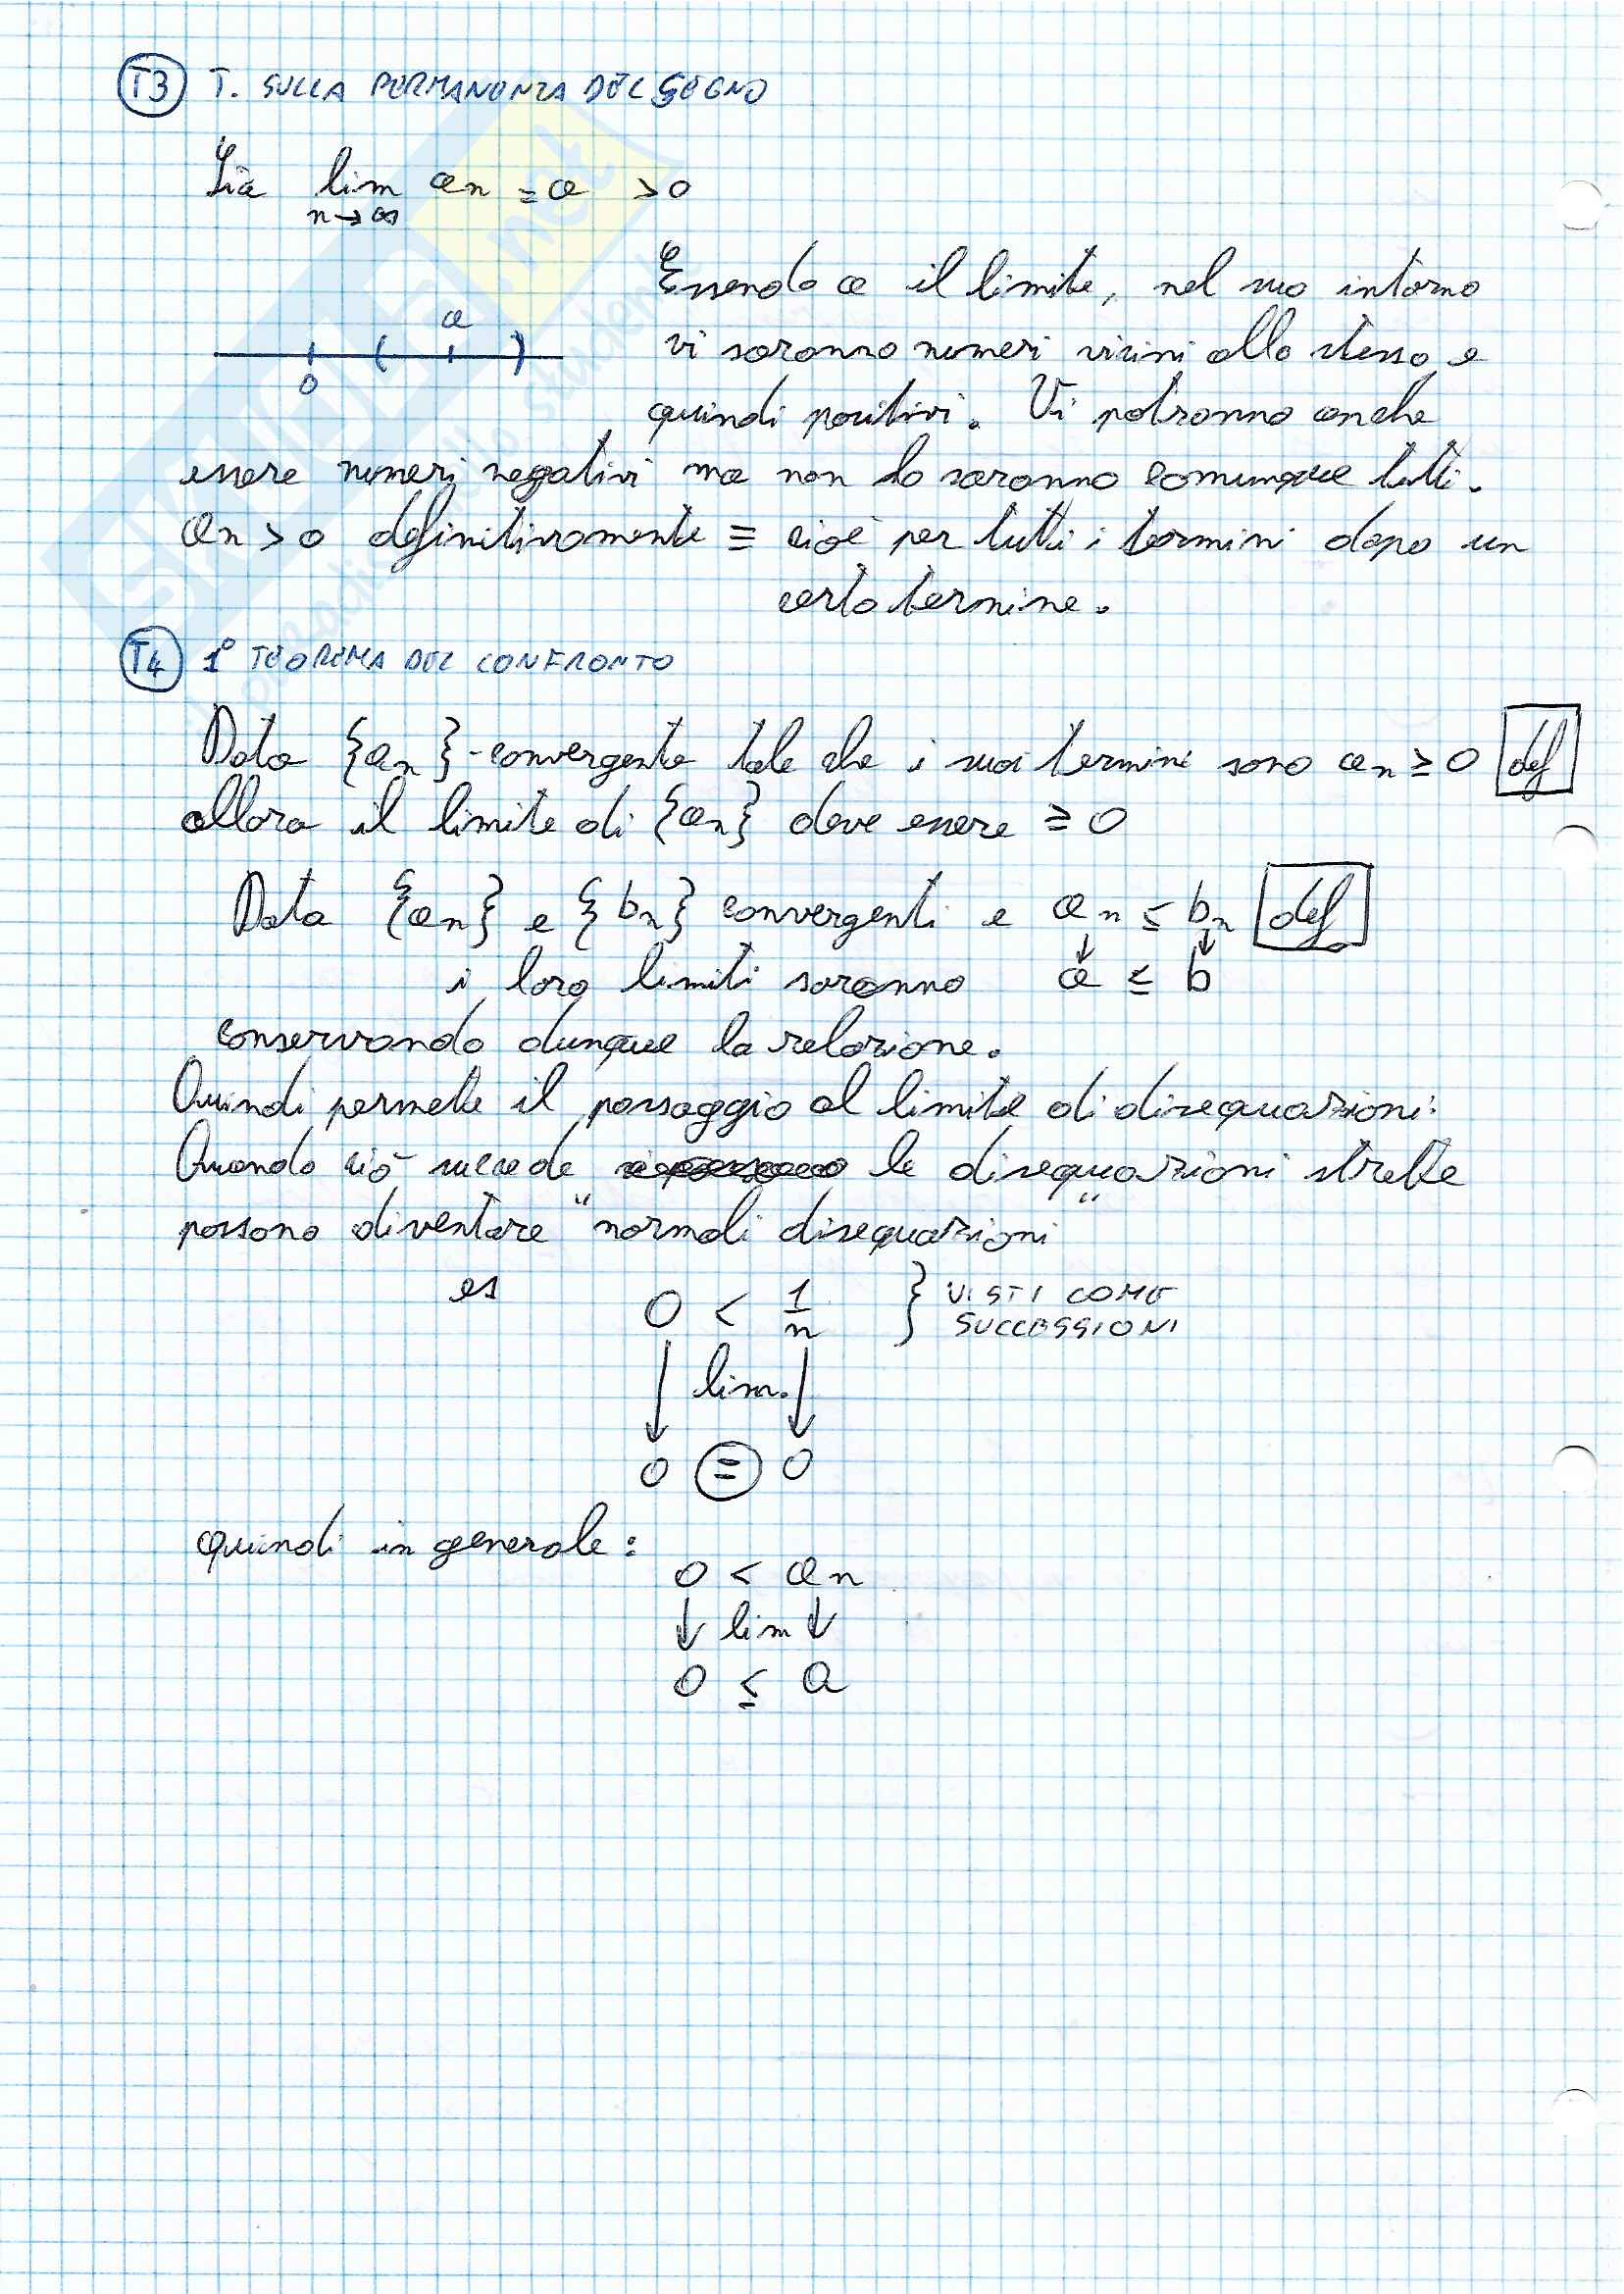 T3 T. SULLA PERMANENZA DEL SEGNO
Sia lim an = a > 0
n→∞
Essendo a il limite, nel suo intorno
a
vi saranno numeri vicini allo stesso e
0
quindi positivi. Vi potranno anche
essere numeri negativi ma non lo saranno comunque tutti.
an > 0 definitivamente ≡ cioè per tutti i termini dopo un
certo termine.
T4 1° TEOREMA DEL CONFRONTO
Data {an} - convergente tale che i suoi termini sono an ≥ 0 def
allora il limite di {an} deve essere ≥ 0
Data {an} e {bn} convergenti e an ≤ bn def
↓ ↓
i loro limiti saranno a ≤ b
conservando dunque la relazione.
Quindi permette il passaggio al limite di disequazioni:
Quando ciò succede le disequazioni strette
possono diventare "normali disequazioni"
es 0 < 1/n } VISTI COME
SUCCESSIONI
↓ lim. ↓
0 = 0
quindi in generale:
0 < an
↓ lim ↓
0 ≤ a